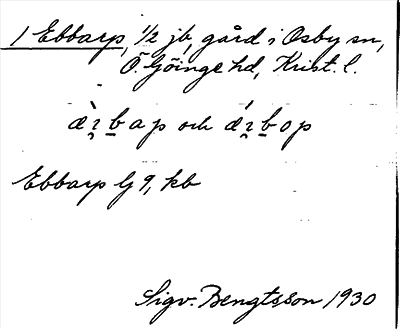 1 Ebbarp, 1/2 jb, gård i Osby sn,
Ö. Göinge hd, Krist. l.
och
Ebbarp lj 9, kb
Sigv. Bengtsson 1930